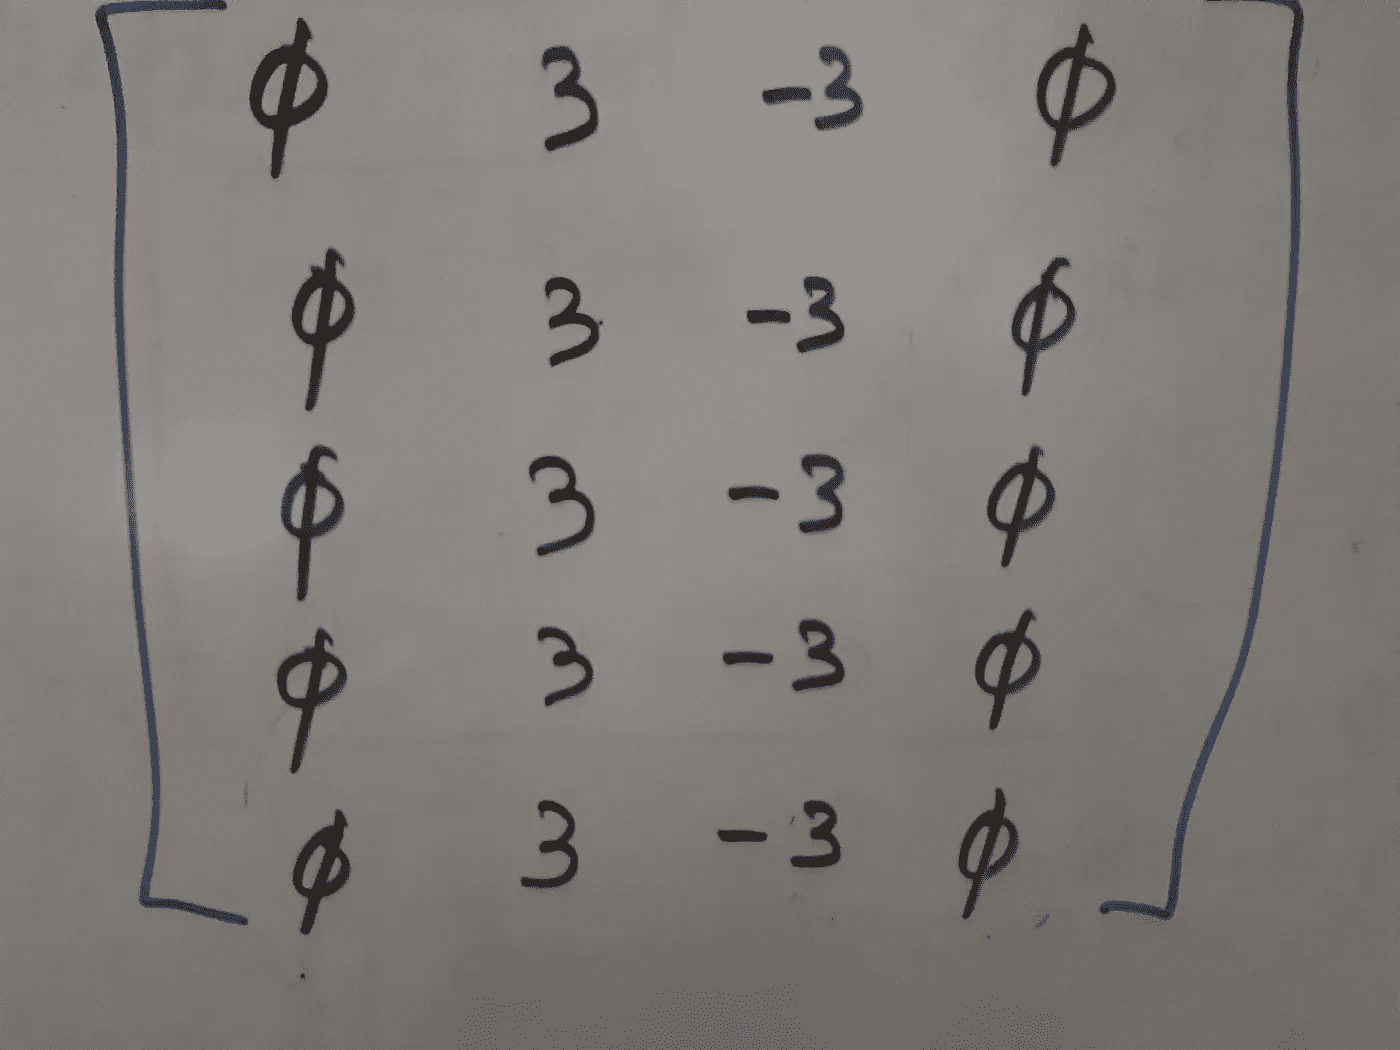 ϕ 3 -3 ϕ
ϕ 3 -3 ϕ
ϕ 3 -3 ϕ
ϕ 3 -3 ϕ
ϕ 3 -3 ϕ